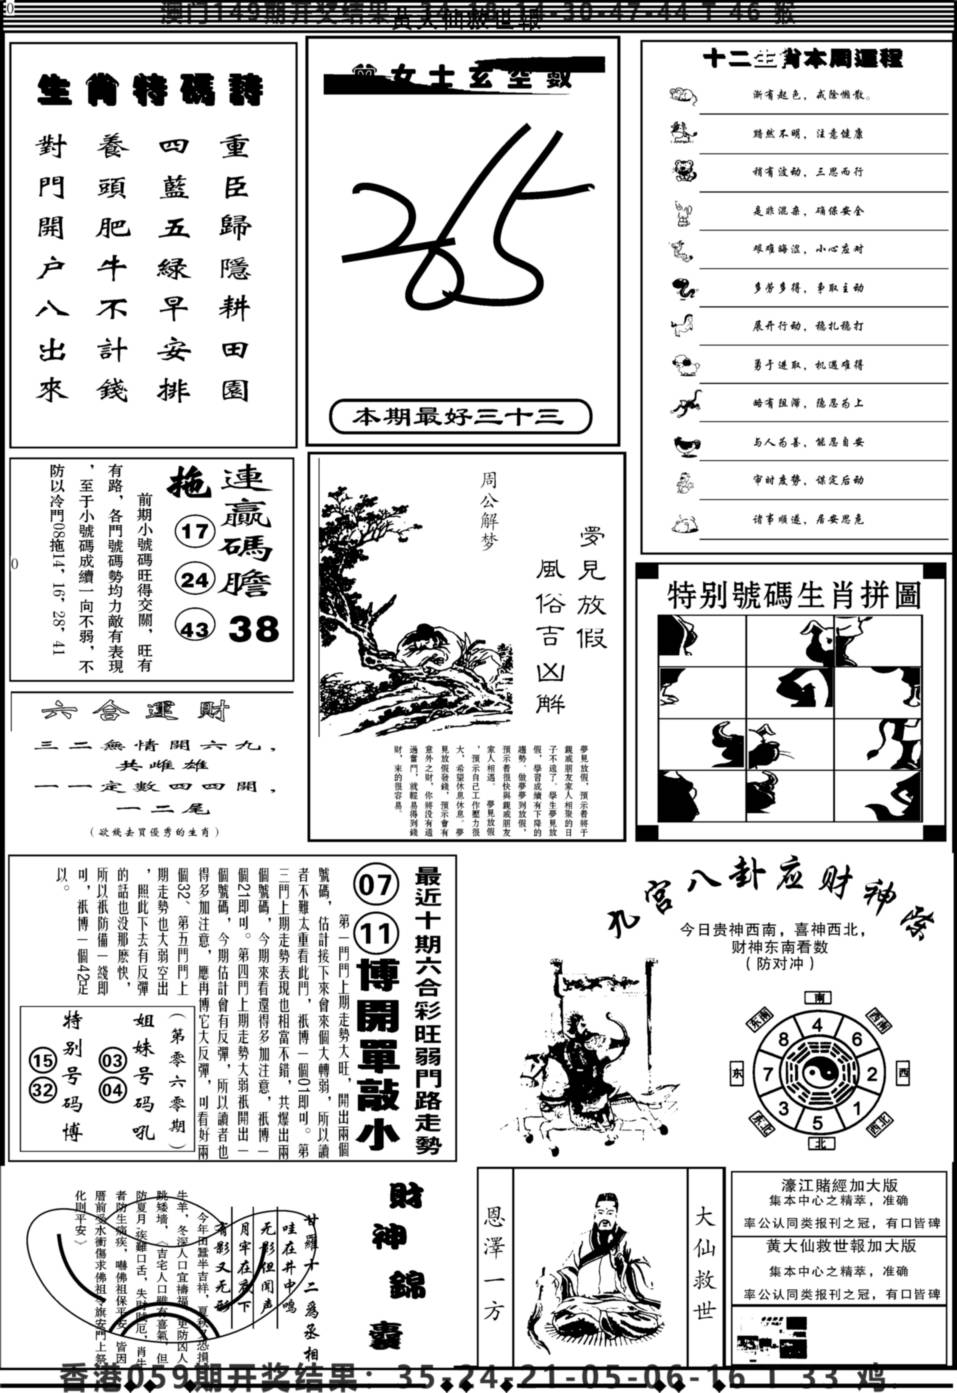 澳门149期开奖结果
黃大仙救世報
生肖特碼詩
重臣歸隱耕田園
四藍五綠早安排
養頭肥牛不計錢
對門開户八出來
曾女士玄空數
本期最好三十三
十二生肖本周運程
渐有起色，戒除懒散。
黯然不明，注意健康
稍有波动，三思而行
是非混杂，确保安全
艰难晦涩，小心应对
多劳多得，争取主动
展开行动，稳扎稳打
勇于进取，机遇难得
略有阻滞，隐忍为上
与人为善，能忍自安
审时度势，谋定后动
诸事顺遂，居安思危
連贏碼膽 38
拖 17 24 43
前期小號碼旺得交關，旺有
有路，各門號碼勢均力敵有表現
，至于小號碼成績一向不弱，不
防以冷門08拖14，16，28，41
周公解梦
夢見放假
風俗吉凶解
夢見放假，預示者將于
親戚朋友家人相聚的日
子不遠了。學生夢見放
假，學習成績有下降的
趨勢。做夢夢到放假，
預示者很快與親戚朋友
家人相遇。夢見放假
，預示自己工作壓力很
大，希望休息休息。夢
見放假發錢，預示會有
意外之財，你將没有通
過奮鬥，就輕易得到錢
財，来的很容易。
特别號碼生肖拼圖
六合運財
三二無情開六九，
共雌雄
一一定數四四開，
一二尾
（欲錢去買優秀的生肖）
最近十期六合彩旺弱門路走勢
07 11 博開單敲小
第一門門上期走勢大旺，開出兩個
號碼，估計接下來會來個大轉弱，所以讀
者不難太重看此門，祇博一個01即可。第
三門上期走勢表現也相當不錯，共爆出兩
個號碼，今期來看還得多加注意，祇博一
個21即可。第四門上期走勢大弱祇開出一
個號碼，今期估計會有反彈，所以讀者也
得多加注意，應冉博它大反彈，可看好兩
個32、第五門門上
期走勢也大弱空出
，照此下去有反彈
的話也没那麽快，
所以祇防備一錢即
可，祇博一個42足
以。
（第零六零期）
姐妹号码吼
03 04
特别号码博
15 32
九宫八卦应财神际
今日贵神西南，喜神西北，
财神东南看数
（防对冲）
南
西南
西
西北
北
东北
东
东南
4 6 2 1 5 3 7 8
財神錦囊
甘羅十二為丞相
哇在井中鳴
无影但闻声
月牢在底下
有影又无形
今年田蠶半吉祥，夏秋又恐損
牛羊，冬深人口宜禱福，更防囚人
跳矮墙，〈吉宅人口雖有喜氣，但
防夏月·疾難口舌，失財陡厄，肖生
者防生痛疾，嚇佛祖保平安，皆因
厝前受水衝傷求佛祖令旗安門上祭
化則平安〉
大仙救世
恩澤一方
濠江賭經加大版
集本中心之精萃，准确
率公认同类报刊之冠，有口皆碑
黄大仙救世報加大版
集本中心之精萃，准确
率公认同类报刊之冠，有口皆碑
香港059期开奖结果：35-24-21-05-06-16 T 33 鸡